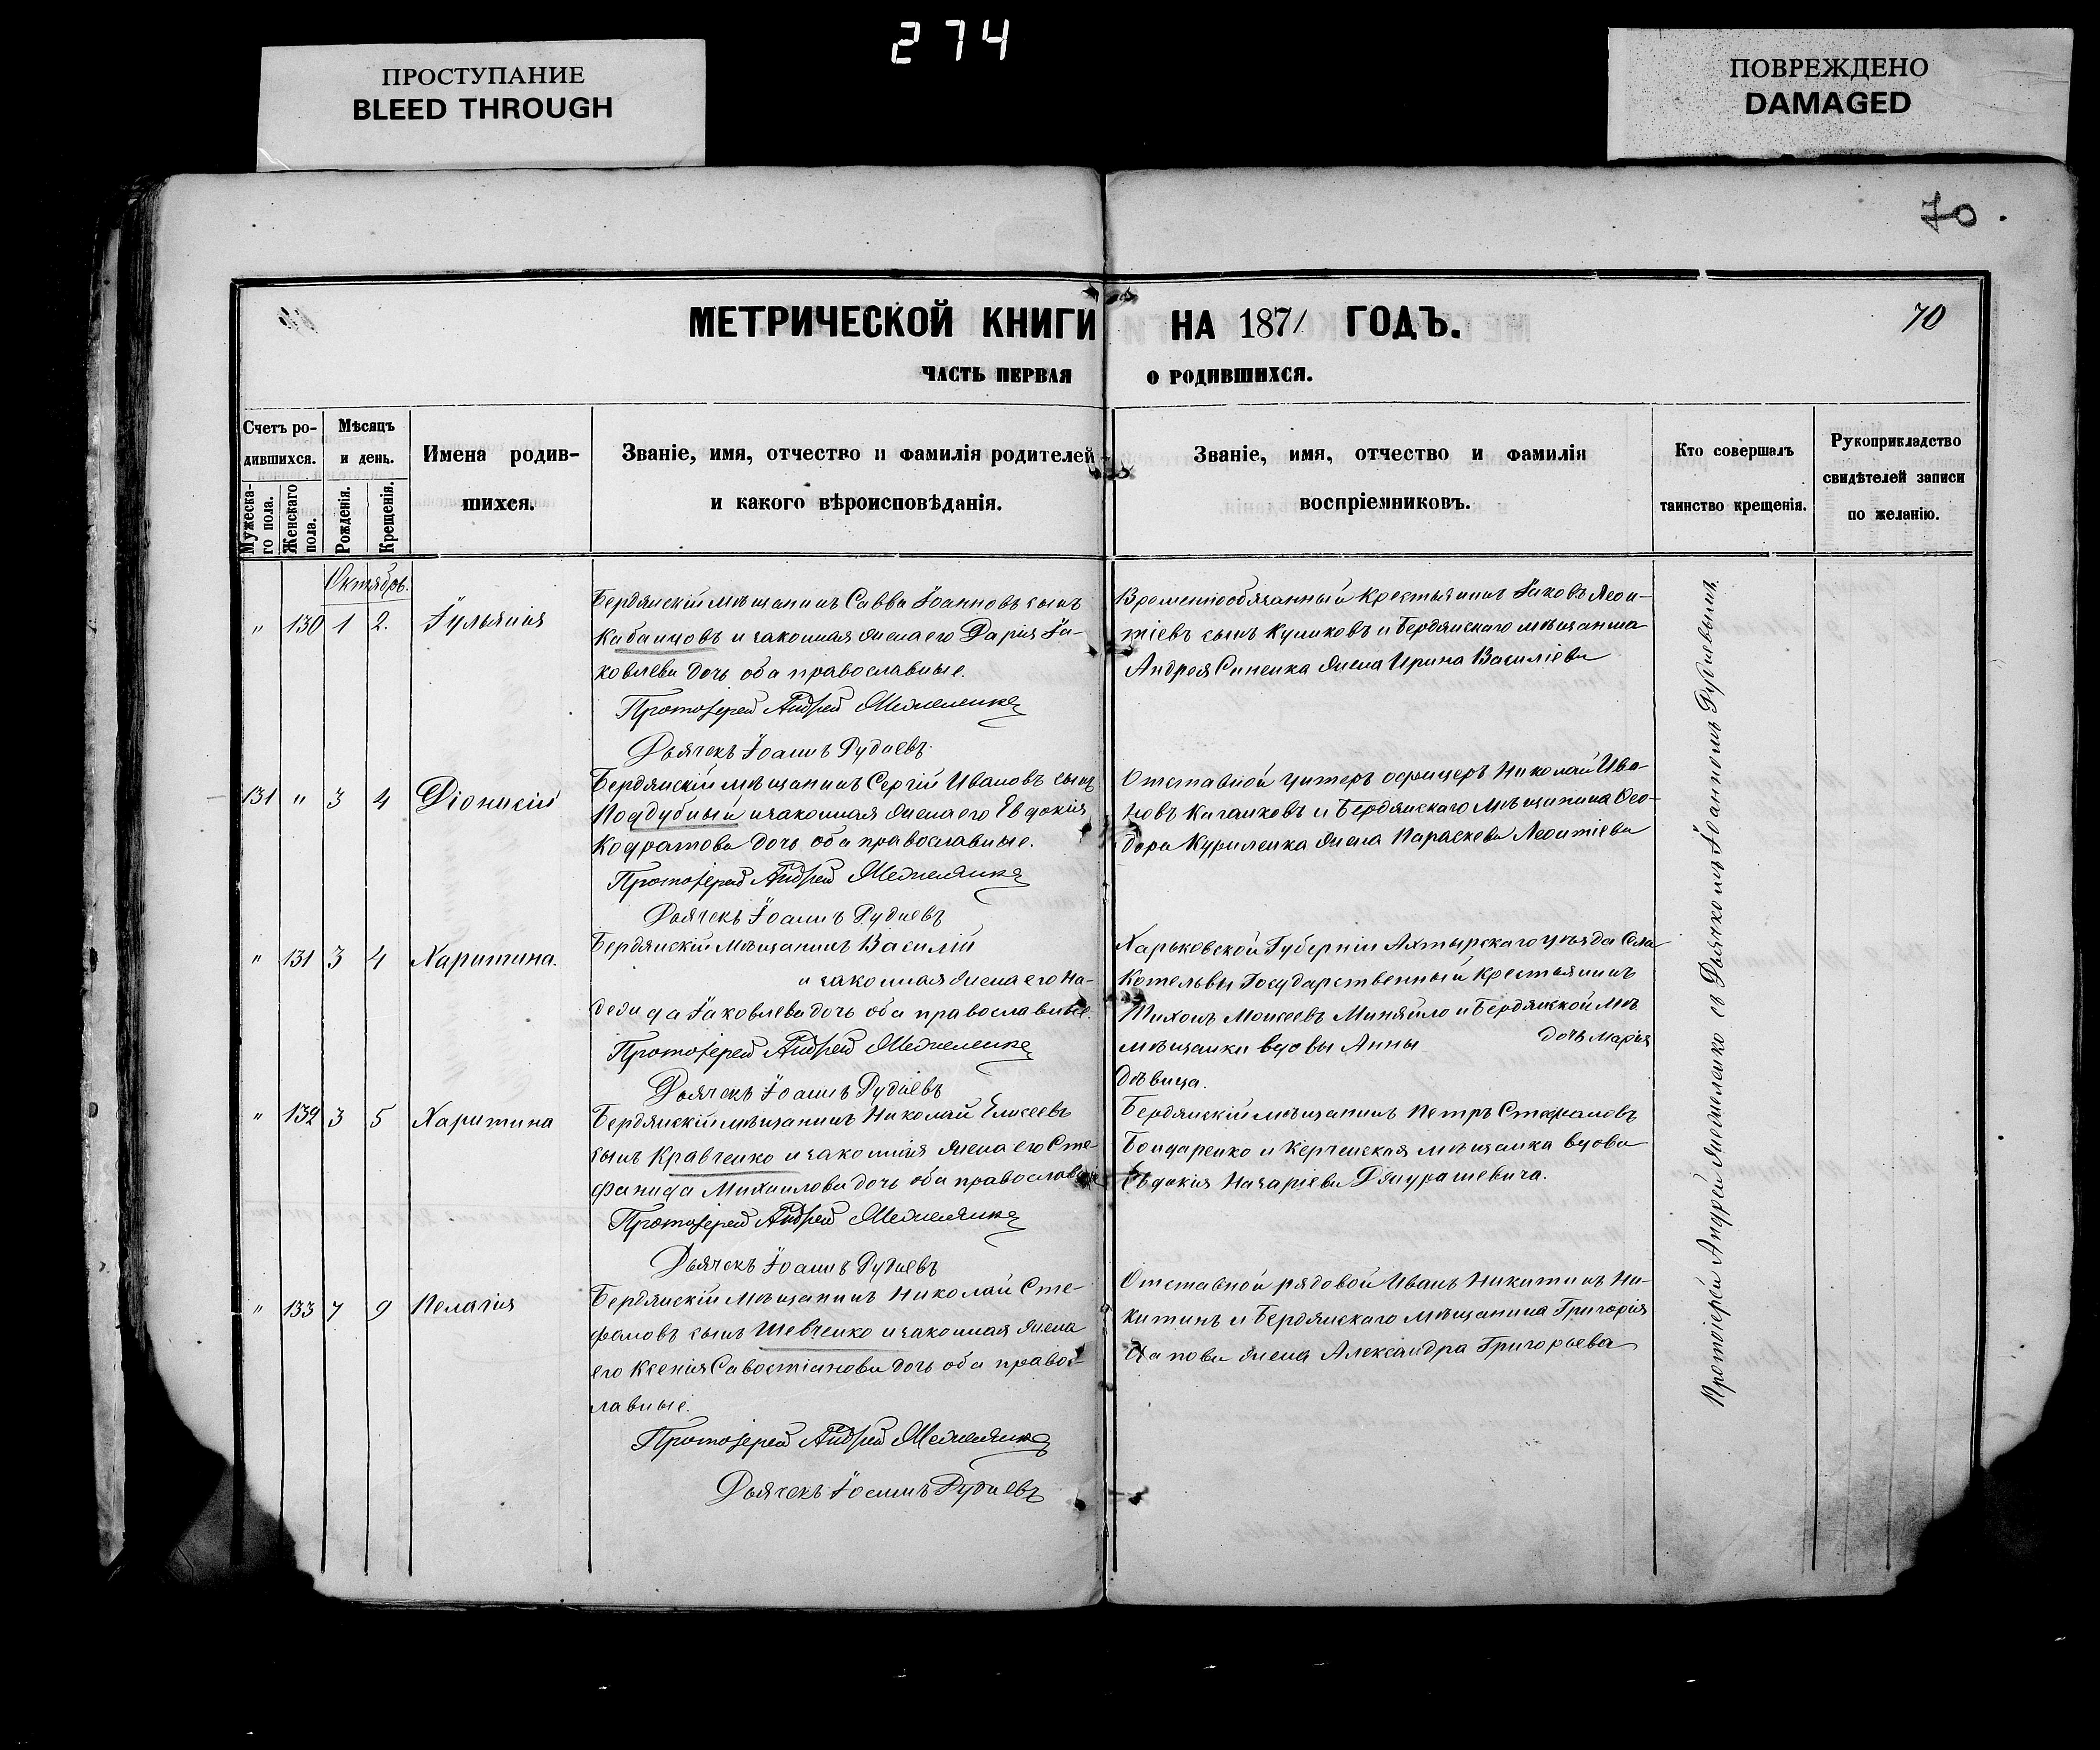 274
ПРОСТУПАНИЕ
BLEED THROUGH
ПОВРЕЖДЕНО
DAMAGED
70.
70
МЕТРИЧЕСКОЙ КНИГИ НА 1871 ГОДЪ.
ЧАСТЬ ПЕРВАЯ О РОДИВШИХСЯ.
Счетъ ро-
дившихся.
Мужеска-
го пола.
Женскаго
пола.
Мѣсяцъ
и день.
Рожденія.
Крещенія.
Имена родив-
шихся.
Званіе, имя, отчество и фамилія родителей
и какого вѣроисповѣданія.
Званіе, имя, отчество и фамилія
воспріемниковъ.
Кто совершалъ
таинство крещенія.
Рукоприкладство
свидѣтелей записи
по желанію.
Октябрь.
" 130 1 2. Іульянія
Бердянскій мѣщанинъ Савва Іоанновъ сынъ
Кабанцовъ и законная жена его Дарія Іа-
ковлева дочь оба православные.
Протоіерей Андрей
Дьячекъ Іоаннъ Рудневъ
Временнообязанный крестьянинъ Іаковъ Леон-
тіевъ сынъ Куликовъ и Бердянскаго мѣщанина
Андрея Синенка жена Ирина Василіева
131 " 3 4 Діонисій
Бердянскій мѣщанинъ Сергій Ивановъ сынъ
Поддубный и законная жена его Евдокія
Кодратова дочь оба православные.
Протоіерей Андрей
Дьячекъ Іоаннъ Рудневъ
Отставной унтеръ офицеръ Николай Ива-
новъ и Бердянскаго мѣщанина Ѳео-
дора Куриленка жена Параскева Леонтіева
" 131 3 4 Харитина.
Бердянскій мѣщанинъ Василій
и законная жена его На-
дежда Іаковлева дочь оба православные.
Протоіерей Андрей
Дьячекъ Іоаннъ Рудневъ
Харьковской Губерніи Ахтырскаго уѣзда Села
Котельвы Государственный крестьянинъ
Тихонъ Моисеевъ Миняйло и Бердянской мѣ
мѣщанки вдовы Анны дочь Марія
дѣвица.
" 132 3 5 Харитина
Бердянскій мѣщанинъ Николай Елисеевъ
сынъ Кравченко и законная жена его Сте-
фанида Михаилова дочь оба православные
Протоіерей Андрей
Дьячекъ Іоаннъ Рудневъ
Бердянскій мѣщанинъ Петръ Стефановъ
Бондаренко и Керченская мѣщанка вдова
Евдокія Назаріева
" 133 7 9 Пелагія
Бердянскій мѣщанинъ Николай Сте-
фановъ сынъ Шевченко и законная жена
его Ксенія Савостіанова дочь оба правос-
лавные.
Протоіерей Андрей
Дьячекъ Іоаннъ Рудневъ
Отставной рядовой Иванъ Никитинъ Ни-
китинъ и Бердянскаго мѣщанина Григорія
жена Александра Григорьева
Протоіерей Андрей съ Дьячкомъ Іоанномъ Рудневымъ.